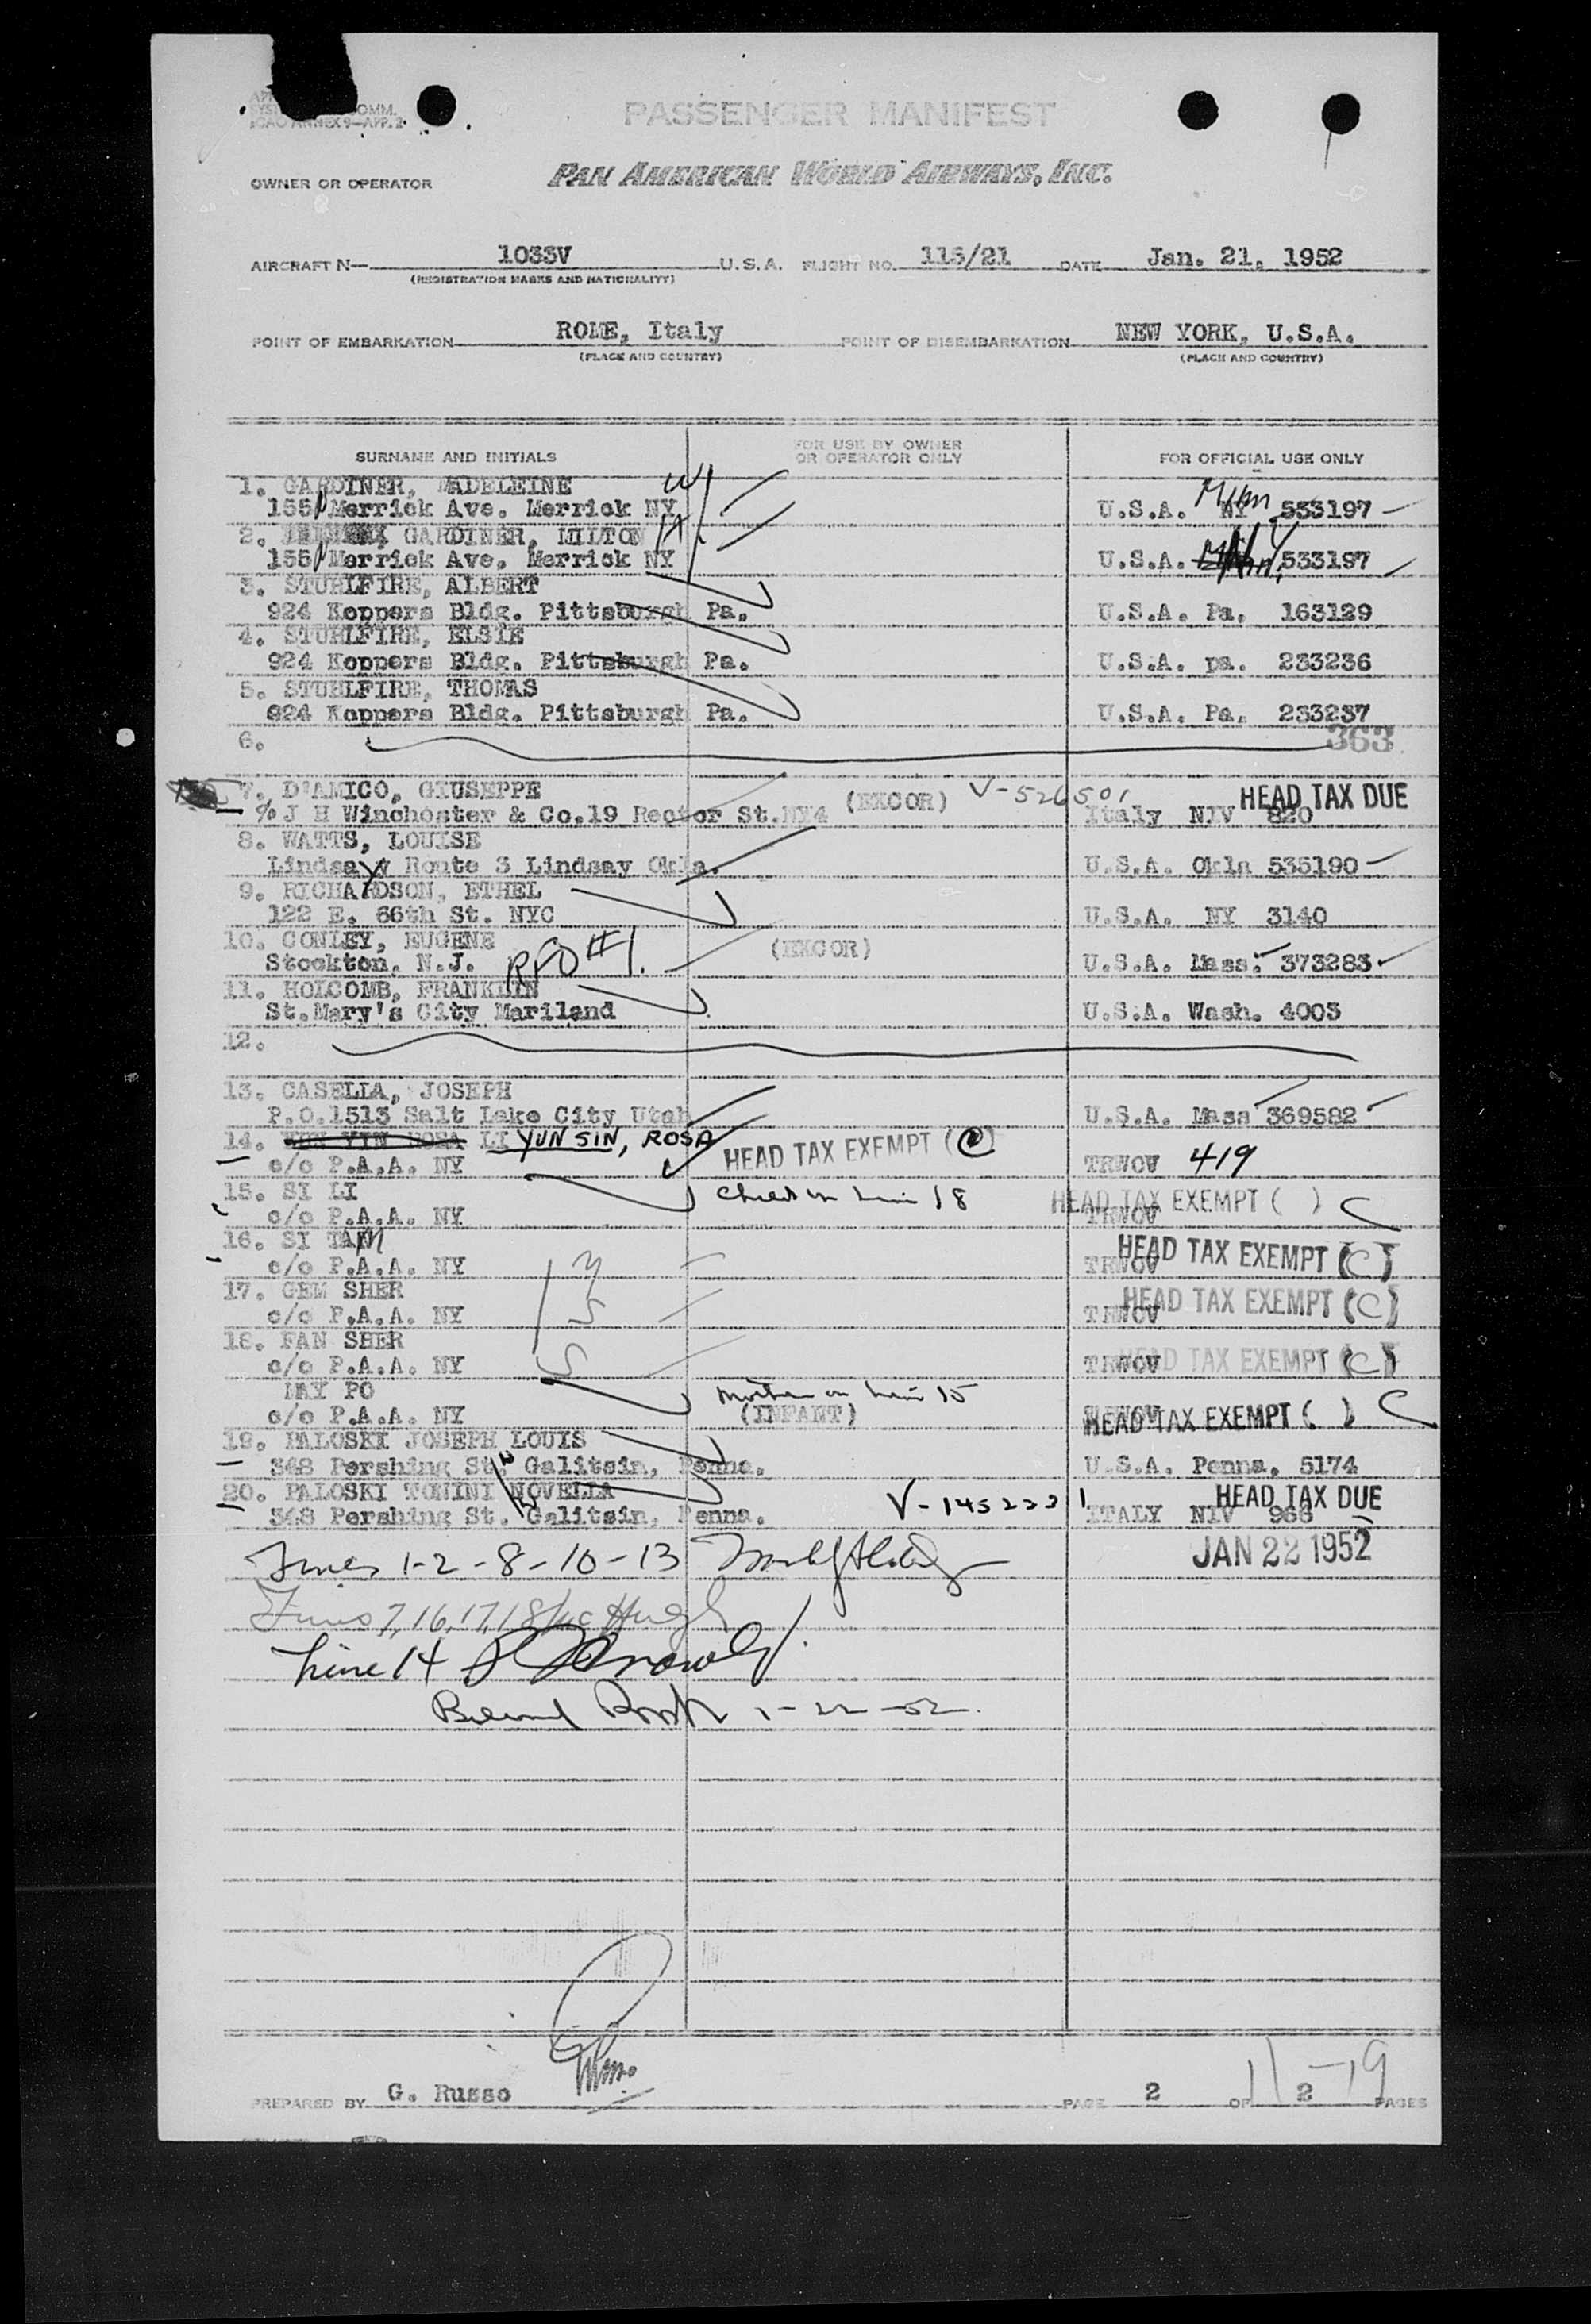 OMM.
ICAO ANNEX 9—APP. 2
PASSENGER MANIFEST
OWNER OR OPERATOR PAN AMERICAN WORLD AIRWAYS, INC.
AIRCRAFT N— 1033V U.S.A. FLIGHT NO. 115/21 DATE Jan. 21, 1952
(REGISTRATION MARKS AND NATIONALITY)
POINT OF EMBARKATION ROME, Italy POINT OF DISEMBARKATION NEW YORK, U.S.A.
(PLACE AND COUNTRY) (PLACE AND COUNTRY)
SURNAME AND INITIALS FOR USE BY OWNER OR OPERATOR ONLY FOR OFFICIAL USE ONLY
1. GARDINER, MADELEINE W
155 Merrick Ave. Merrick NY U.S.A. NY 533197
2. GARDINER, MILTON H
155 Merrick Ave. Merrick NY U.S.A. 533197
3. STUHLFIRE, ALBERT
924 Koppers Bldg. Pittsburgh Pa. U.S.A. Pa. 163129
4. STUHLFIRE, ELSIE
924 Koppers Bldg. Pittsburgh Pa. U.S.A. pa. 233236
5. STUHLFIRE, THOMAS
924 Koppers Bldg. Pittsburgh Pa. U.S.A. Pa. 233237
6. 363
7. D'AMICO, GIUSEPPE (EXCOR) V-526501 HEAD TAX DUE
% J H Winchester & Co.19 Rector St.NY4 Italy NIV 820
8. WATTS, LOUISE
Lindsay Route 3 Lindsay Okla. U.S.A. Okla 535190
9. RICHARDSON, ETHEL
122 E. 66th St. NYC U.S.A. NY 3140
10. CONLEY, EUGENE (EXCOR)
Stockton, N.J. RFD #1. U.S.A. Mass. 373283
11. HOLCOMB, FRANKLIN
St.Mary's City Mariland U.S.A. Wash. 4003
12.
13. CASELLA, JOSEPH
P.O.1513 Salt Lake City Utah U.S.A. Mass 369582
14. LI YUN SIN, ROSA HEAD TAX EXEMPT (C)
c/o P.A.A. NY TRWOV 419
15. SI LI Child on line 18 HEAD TAX EXEMPT ( ) C
c/o P.A.A. NY TRWOV
16. SI TAM HEAD TAX EXEMPT (C)
c/o P.A.A. NY TRWOV
17. GEM SHER HEAD TAX EXEMPT (C)
c/o P.A.A. NY S TRWOV
18. FAN SHER
c/o P.A.A. NY S TRWOV HEAD TAX EXEMPT (C)
MAY PO Mother on line 15
c/o P.A.A. NY (INFANT) HEAD TAX EXEMPT ( ) C
19. PALOSKI JOSEPH LOUIS
348 Pershing St. Galitsin, Penna. U.S.A. Penna. 5174
20. PALOSKI TONINI NOVELLA V-1452221 HEAD TAX DUE
348 Pershing St. Galitsin, Penna. ITALY NIV 966
Lines 1-2-8-10-13 JAN 22 1952
Lines 7,16,17,18
Line 14
1-22-52
PREPARED BY G. Russo PAGE 2 OF 2 PAGES
11-19